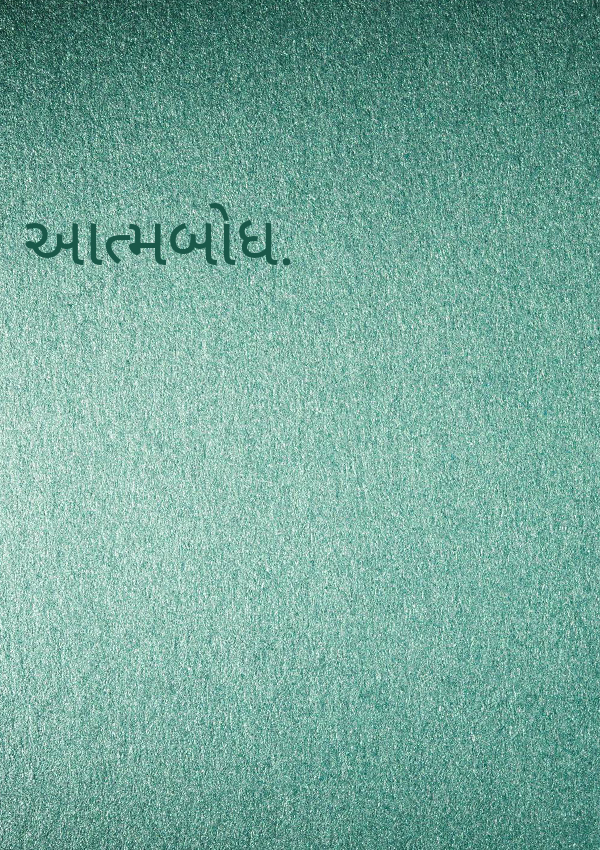 આત્મબોધ.